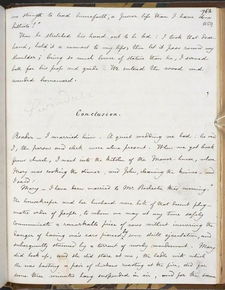 me strength to lead henceforth a purer life than I have done
hitherto!"
Then he stretched his hand out to be led: I took that dear
hand, held it a moment to my lips, then let it pass round my
shoulder; being so much lower of stature than he, I served
both for his prop and guide. We entered the wood and
wended homeward.
Conclusion.
Reader — I married him. A quiet wedding we had: he and
I, the parson and clerk were alone present. When we got back
from church, I went into the kitchen of the Manor-house, where
Mary was cooking the dinner, and John, cleaning the knives, and
I said —
"Mary — I have been married to Mr Rochester this morning."
The housekeeper and her husband were both of that decent phleg-
matic order of people, to whom one may at any time safely
communicate a remarkable piece of news without incurring the
danger of having one's ears pierced by some shrill ejaculation, and
subsequently stunned by a torrent of wordy wonderment. Mary
did look up, and she did stare at me; the ladle with which
she was basting a pair of chickens roasting at the fire, did for
some three minutes hang suspended in air, and for the same